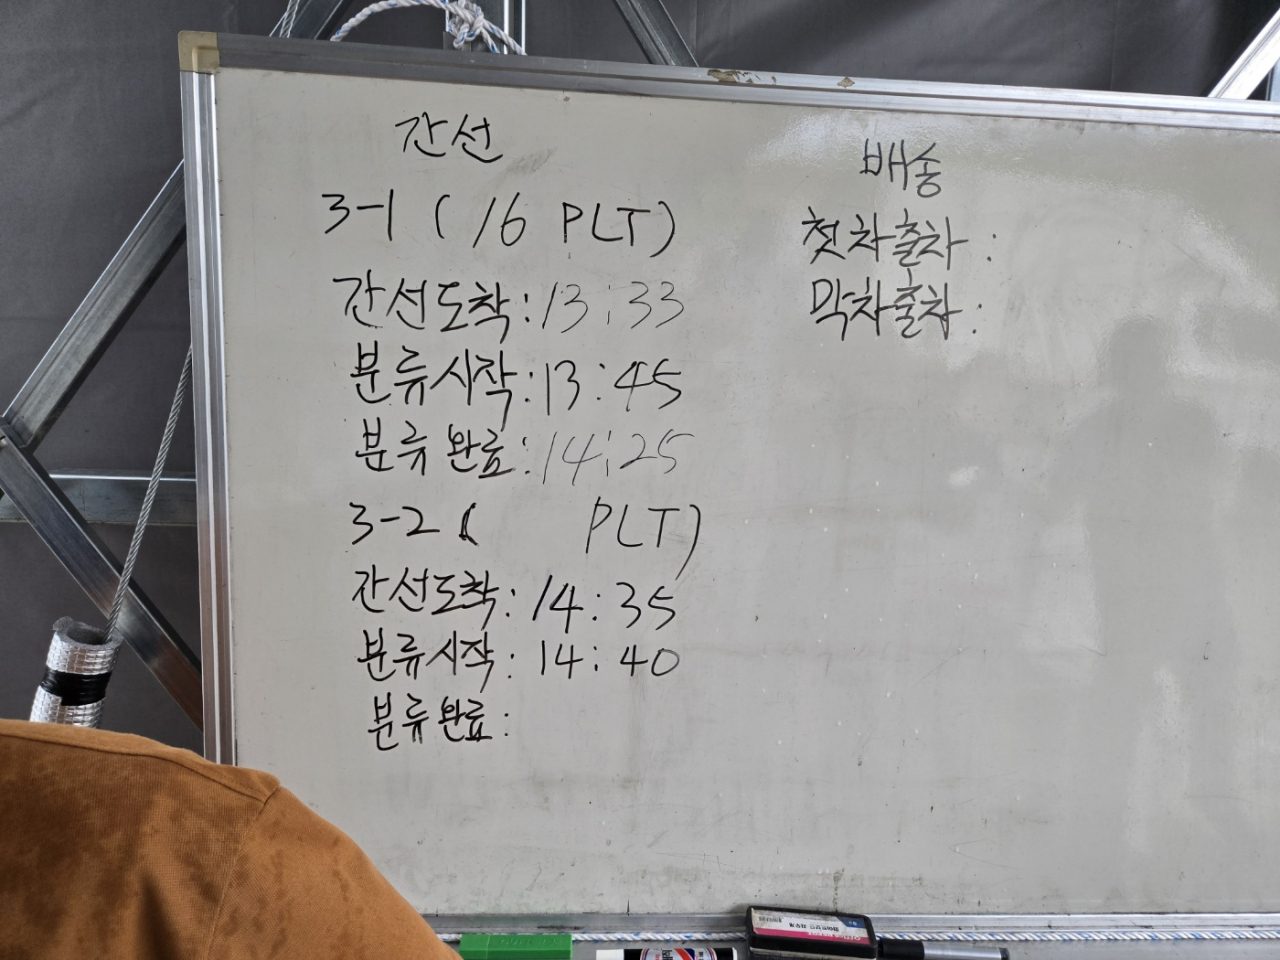 간선
3-1 ( 16 PLT)
간선도착 : 13 : 33
분류시작 : 13 : 45
분류완료 : 14 : 25
3-2 ( PLT)
간선도착 : 14 : 35
분류시작 : 14 : 40
분류완료 :
배송
첫차출차 :
막차출차 :